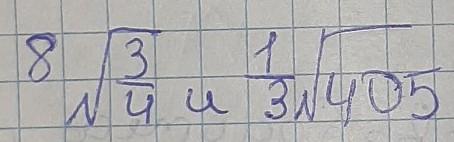 8√(3/4) и 1/3√405